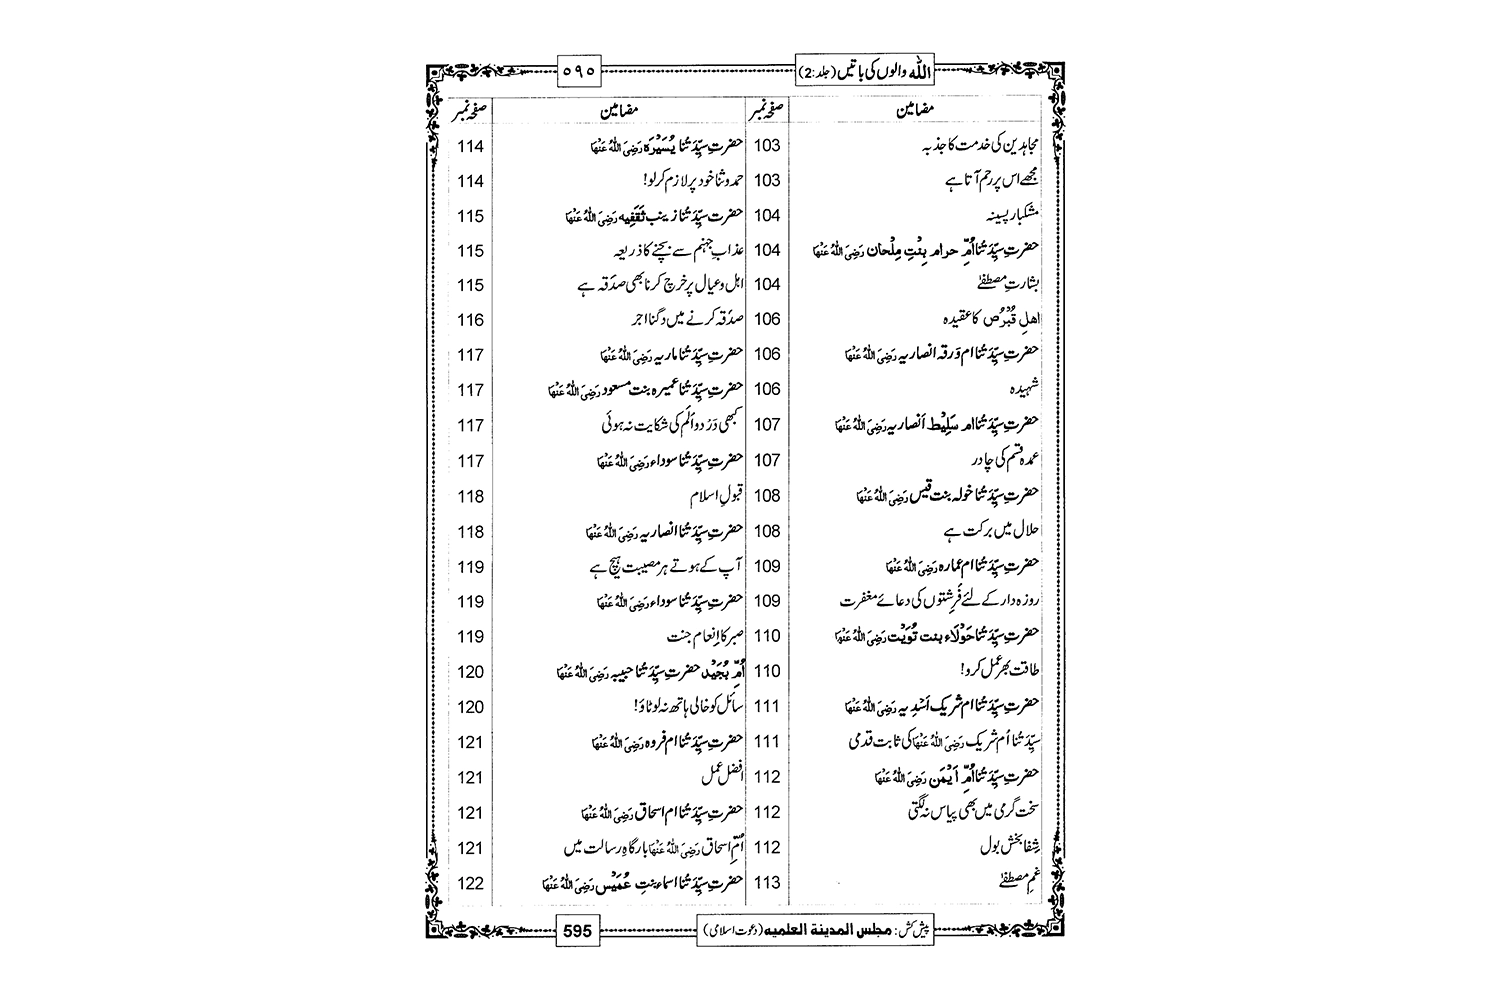 اللہ والوں کی باتیں (جلد:2)
٥٩٥
مضامین
صفحہ نمبر
مجاہدین کی خدمت کا جذبہ 103
مجھے اس پر رحم آتا ہے 103
مشکبار پسینہ 104
حضرتِ سیِّدَتُنا اُمِّ حرام بِنْتِ مِلْحان رَضِیَ اللہُ عَنْہَا 104
بشارتِ مصطفٰے 104
اھلِ قُبْرُص کا عقیدہ 106
حضرتِ سیِّدَتُنا ام وَرقہ انصاریہ رَضِیَ اللہُ عَنْہَا 106
شہیدہ 106
حضرتِ سیِّدَتُنا ام سَلِیْط اَنصاریہ رَضِیَ اللہُ عَنْہَا 107
عمدہ قسم کی چادر 107
حضرتِ سیِّدَتُنا خولہ بنت قیس رَضِیَ اللہُ عَنْہَا 108
حلال میں برکت ہے 108
حضرتِ سیِّدَتُنا ام عمارہ رَضِیَ اللہُ عَنْہَا 109
روزہ دار کے لئے فَرِشتوں کی دعائے مغفرت 109
حضرتِ سیِّدَتُنا حَوْلَاء بنت تُوَیْت رَضِیَ اللہُ عَنْہَا 110
طاقت بھر عمل کرو! 110
حضرتِ سیِّدَتُنا ام شریک اَسْدِیہ رَضِیَ اللہُ عَنْہَا 111
سیِّدَتُنا اُم شریک رَضِیَ اللہُ عَنْہَا کی ثابت قدمی 111
حضرتِ سیِّدَتُنا اُمِّ اَیْمَن رَضِیَ اللہُ عَنْہَا 112
سخت گرمی میں بھی پیاس نہ لگتی 112
شِفا بخش بول 112
غمِ مصطفٰے 113
مضامین
صفحہ نمبر
حضرتِ سیِّدَتُنا یُسَیْرَہ رَضِیَ اللہُ عَنْہَا 114
حمد و ثنا خود پر لازم کر لو! 114
حضرتِ سیِّدَتُنا زینب ثَقَفِیہ رَضِیَ اللہُ عَنْہَا 115
عذابِ جہنم سے بچنے کا ذریعہ 115
اہل و عیال پر خرچ کرنا بھی صدَقہ ہے 115
صدَقہ کرنے میں دگنا اجر 116
حضرتِ سیِّدَتُنا ماریہ رَضِیَ اللہُ عَنْہَا 117
حضرتِ سیِّدَتُنا عمیرہ بنت مسعود رَضِیَ اللہُ عَنْہَا 117
کبھی دَرْد و اَلَم کی شکایت نہ ہوئی 117
حضرتِ سیِّدَتُنا سوداء رَضِیَ اللہُ عَنْہَا 117
قبولِ اسلام 118
حضرتِ سیِّدَتُنا انصاریہ رَضِیَ اللہُ عَنْہَا 118
آپ کے ہوتے ہر مصیبت ہیچ ہے 119
حضرتِ سیِّدَتُنا سوداء رَضِیَ اللہُ عَنْہَا 119
صبر کا اِنعام جنت 119
اُمِّ بُجَیْد حضرتِ سیِّدَتُنا حبیبہ رَضِیَ اللہُ عَنْہَا 120
سائل کو خالی ہاتھ نہ لوٹاؤ! 120
حضرتِ سیِّدَتُنا ام فروہ رَضِیَ اللہُ عَنْہَا 121
افضل عمل 121
حضرتِ سیِّدَتُنا ام اسحاق رَضِیَ اللہُ عَنْہَا 121
اُمِّ اسحاق رَضِیَ اللہُ عَنْہَا بارگاہِ رسالت میں 121
حضرتِ سیِّدَتُنا اسماء بنتِ عُمَیْس رَضِیَ اللہُ عَنْہَا 122
پیش کش: مجلس المدینۃ العلمیہ (دعوتِ اسلامی)
595